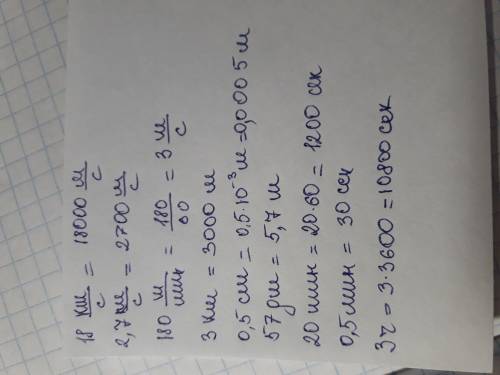 18 км/с = 18000 м/с
2,7 км/с = 2700 м/с
180 м/мин = 180/60 = 3 м/с
3 км = 3000 м
0,5 см = 0,5·10⁻³ м = 0,0005 м
57 дм = 5,7 м
20 мин = 20·60 = 1200 сек
0,5 мин = 30 сек
3ч = 3·3600 = 10800 сек